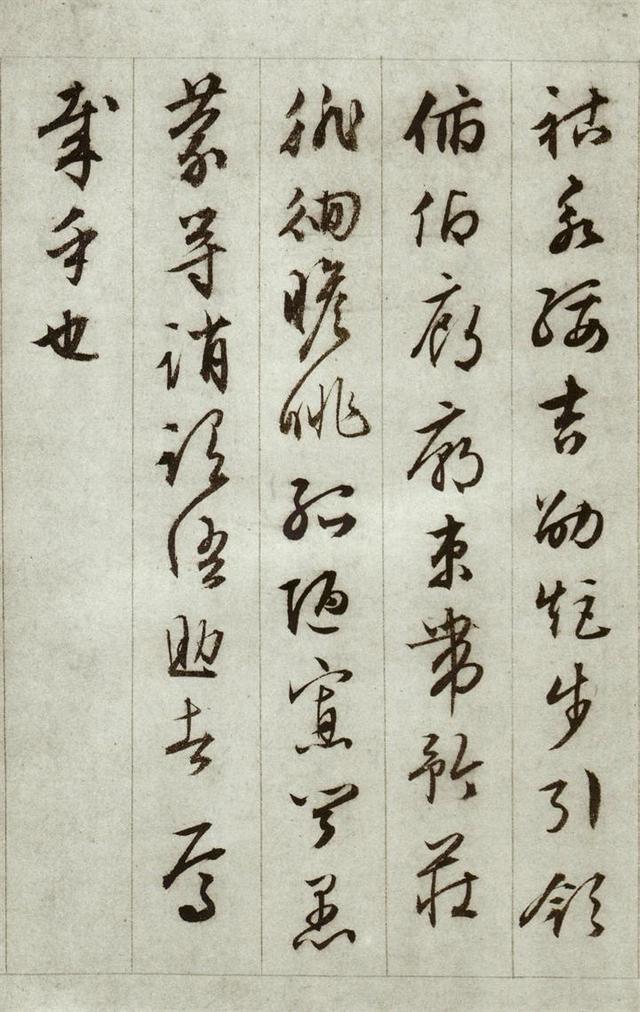 祜永綏吉劭矩步引領
俯仰廊廟束帶矜莊
徘徊瞻眺孤陋寡聞愚
蒙等誚謂語助者焉
哉乎也